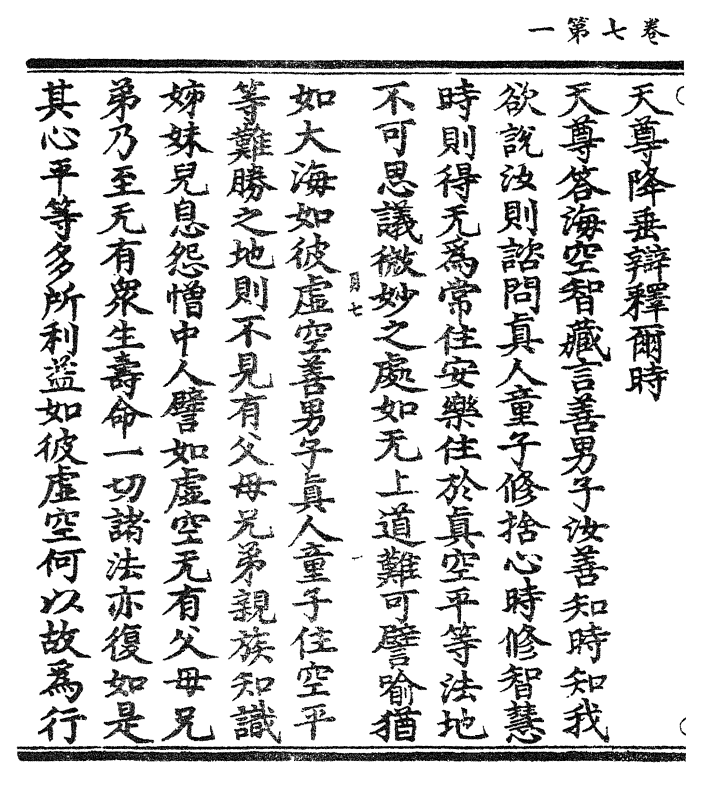 卷七第一
天尊降垂辯釋爾時
天尊答海空智藏言善男子汝善知時知我
欲說汝則諮問真人童子修捨心時修智慧
時則得无爲常住安樂住於真空平等法地
不可思議微妙之處如无上道難可譬喻猶
如大海如彼虛空善男子真人童子住空平
等難勝之地則不見有父母兄弟親族知識
姊妹兒息怨憎中人譬如虛空无有父母兄
弟乃至无有衆生壽命一切諸法亦復如是
其心平等多所利益如彼虛空何以故爲行